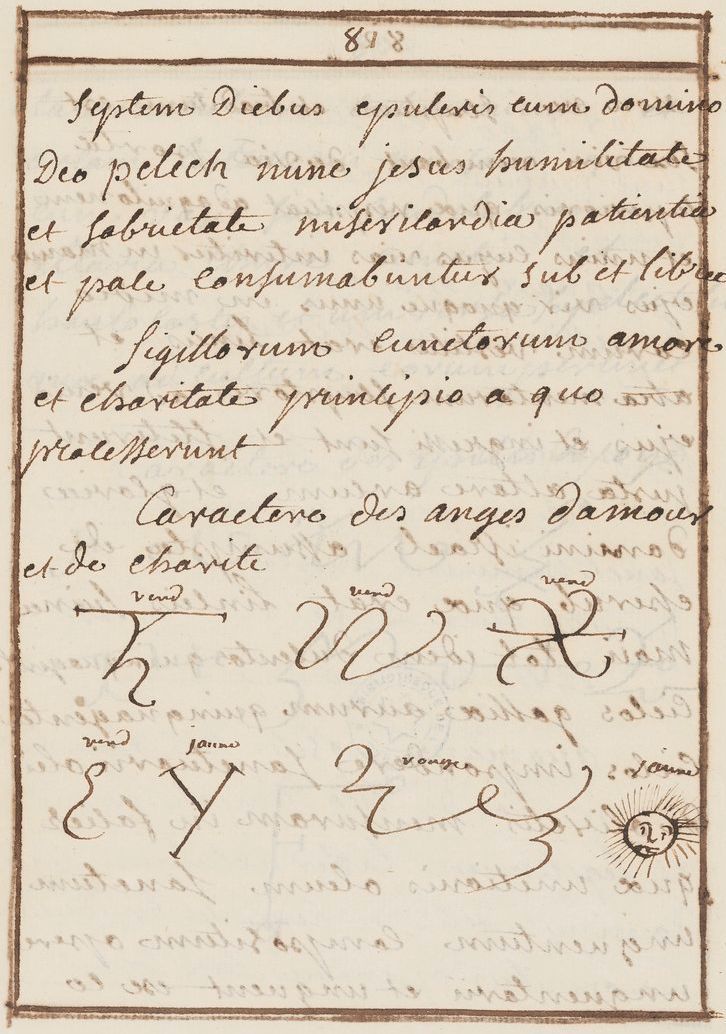 8
Septem Diebus epuleris cum domino
Deo peleck nunc jesus humilitate
et sabrietate misericardia patientia
et pace consumabuntur sub et
Sigillorum cunctorum amore
et charitate principio a quo
processerunt
Caractere des anges damour
et de charite
verd verd verd
verd jaune rouge jaune